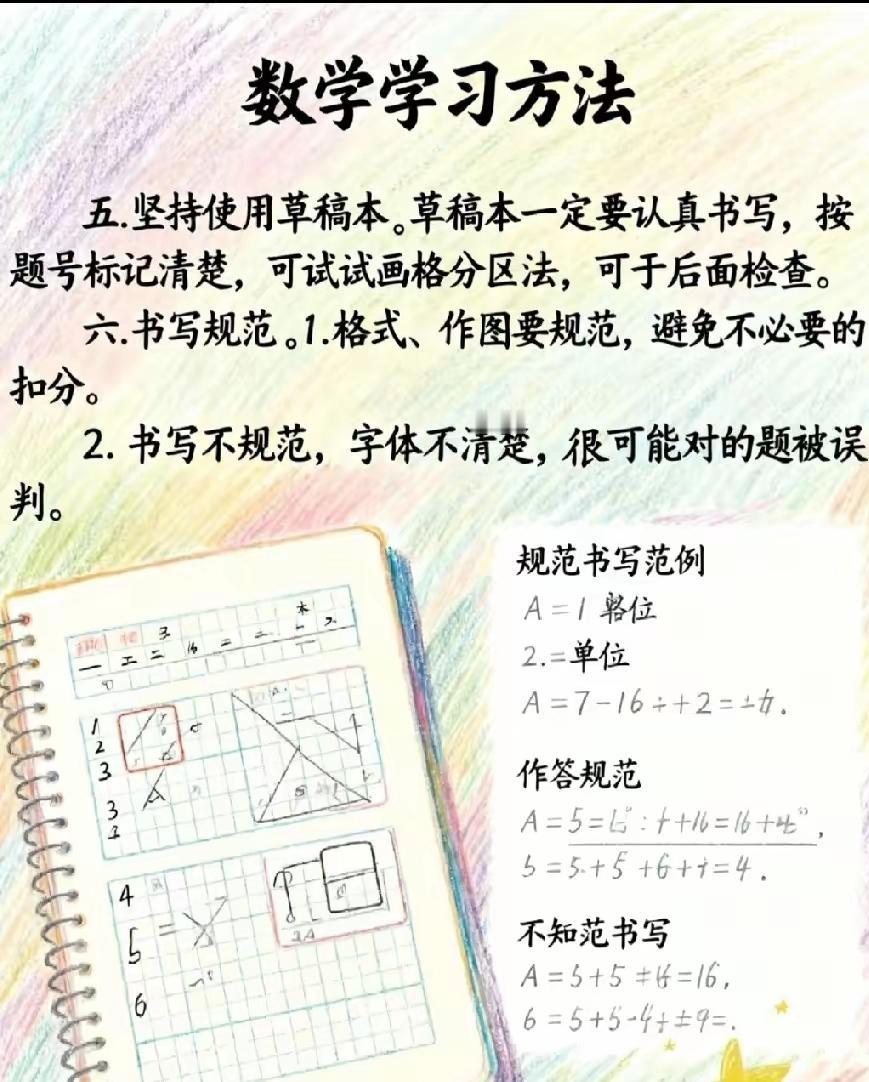 数学学习方法
五.坚持使用草稿本。草稿本一定要认真书写，按
题号标记清楚，可试试画格分区法，可于后面检查。
六.书写规范。1.格式、作图要规范，避免不必要的
扣分。
2. 书写不规范，字体不清楚，很可能对的题被误
判。
规范书写范例
A=1 位
2.=单位
A=7-16÷+2=
作答规范
A=5=
5=5.+5+6+
=4.
不知范书写
A=5+5
=16,
6=5+5-4
1
2
3
3
4
5
6